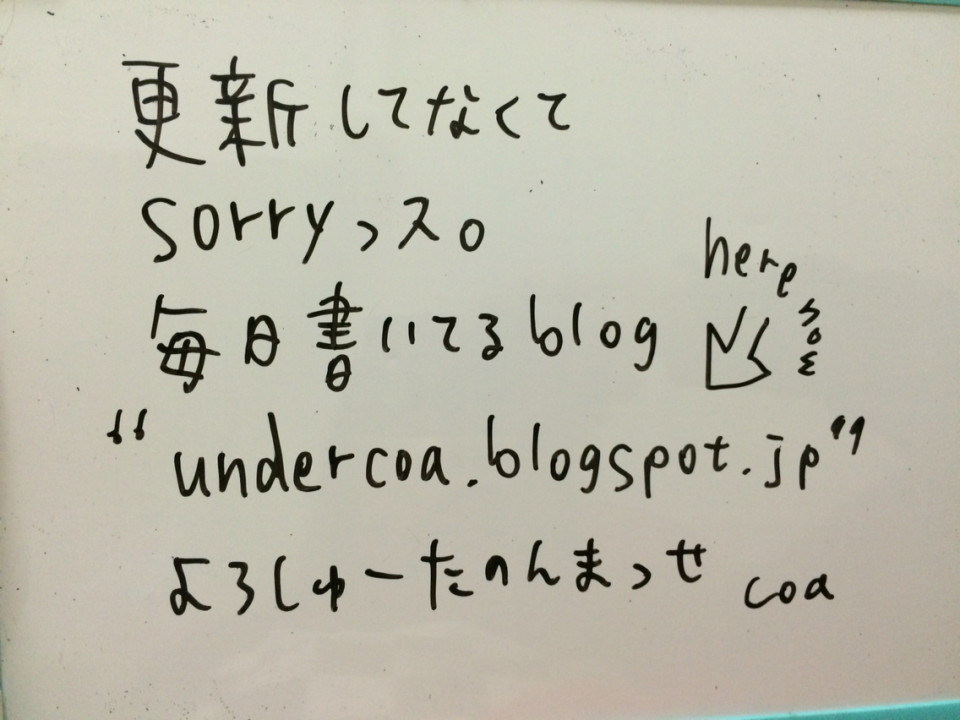 更新してなくて
sorryっス。
毎日書いてるblog
here
"undercoa.blogspot.jp"
よろしゅーたのんまっせ
coa